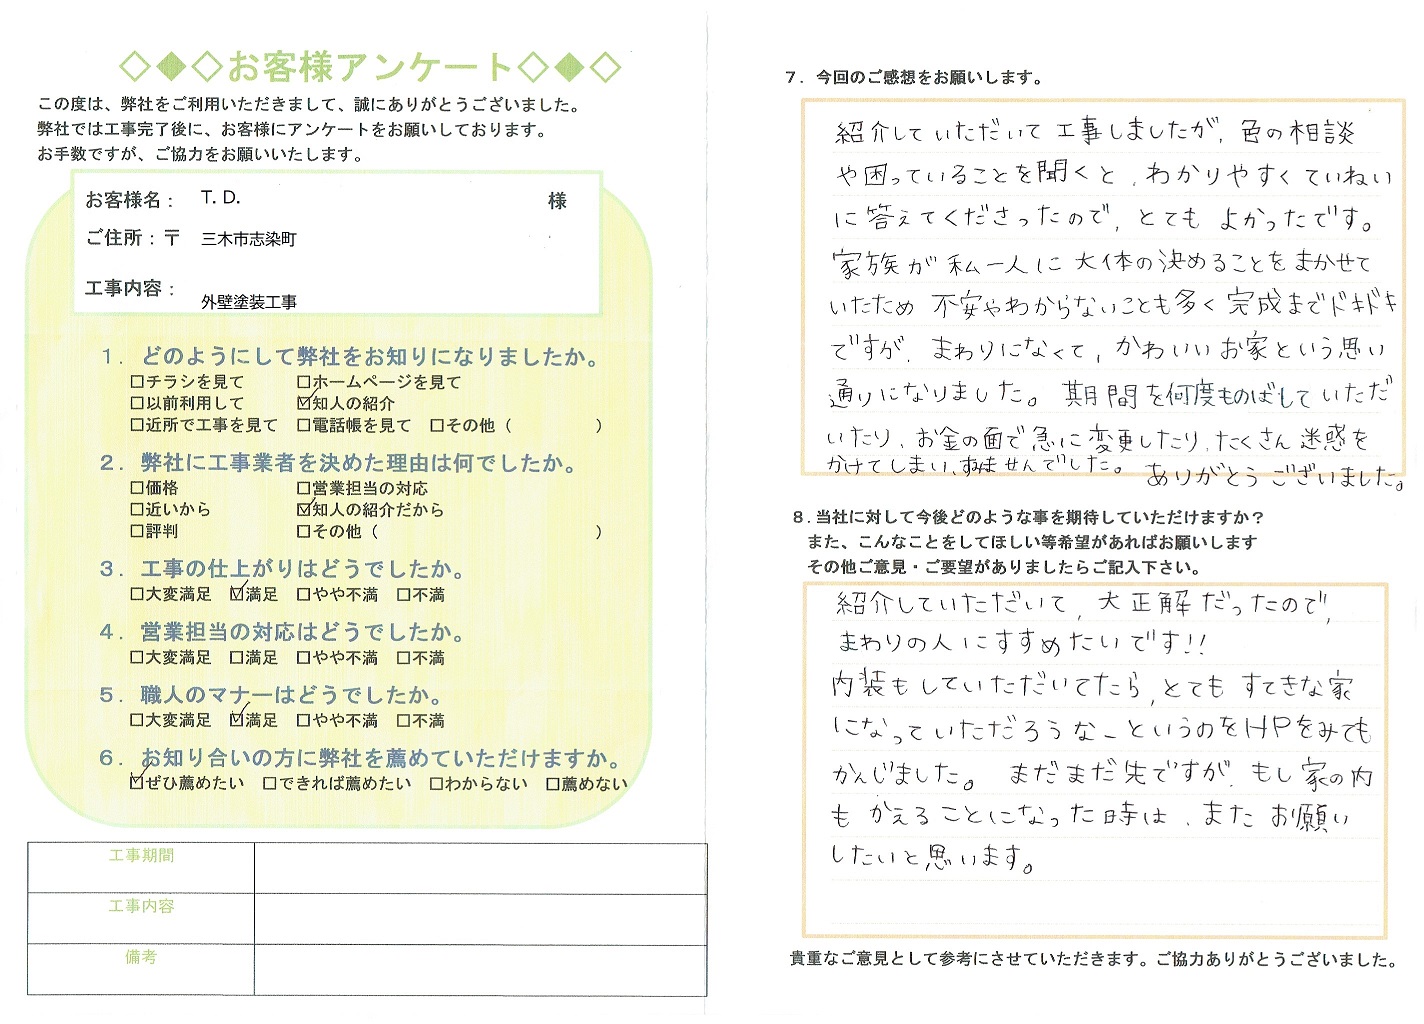 ◇◆◇お客様アンケート◇◆◇
この度は、弊社をご利用いただきまして、誠にありがとうございました。
弊社では工事完了後に、お客様にアンケートをお願いしております。
お手数ですが、ご協力をお願いいたします。
お客様名： T. D. 様
ご住所：〒 三木市志染町
工事内容： 外壁塗装工事
１．どのようにして弊社をお知りになりましたか。
□チラシを見て □ホームページを見て
□以前利用して ☑知人の紹介
□近所で工事を見て □電話帳を見て □その他（ ）
２．弊社に工事業者を決めた理由は何でしたか。
□価格 □営業担当の対応
□近いから ☑知人の紹介だから
□評判 □その他（ ）
３．工事の仕上がりはどうでしたか。
□大変満足 ☑満足 □やや不満 □不満
４．営業担当の対応はどうでしたか。
□大変満足 □満足 □やや不満 □不満
５．職人のマナーはどうでしたか。
□大変満足 ☑満足 □やや不満 □不満
６．お知り合いの方に弊社を薦めていただけますか。
☑ぜひ薦めたい □できれば薦めたい □わからない □薦めない
工事期間
工事内容
備考
７．今回のご感想をお願いします。
紹介していただいて工事しましたが、色の相談
や困っていることを聞くと、わかりやすくていねい
に答えてくださったので、とても よかったです。
家族が私一人に大体の決めることをまかせて
いたため 不安やわからないことも多く完成までドキドキ
ですが、まわりになくて、かわいいお家という思い
通りになりました。 期間を何度ものばしていただ
いたり、お金の面で急に変更したり、たくさん迷惑を
かけてしまい、すみませんでした。 ありがとうございました。
８.当社に対して今後どのような事を期待していただけますか？
また、こんなことをしてほしい等希望があればお願いします
その他ご意見・ご要望がありましたらご記入下さい。
紹介していただいて、大正解だったので、
まわりの人にすすめたいです!!
内装もしていただいてたら、とても すてきな家
になっていただろうなーというのをHPをみても
かんじました。 まだまだ先ですが、もし家の内
も かえることになった時は、また お願い
したいと思います。
貴重なご意見として参考にさせていただきます。ご協力ありがとうございました。